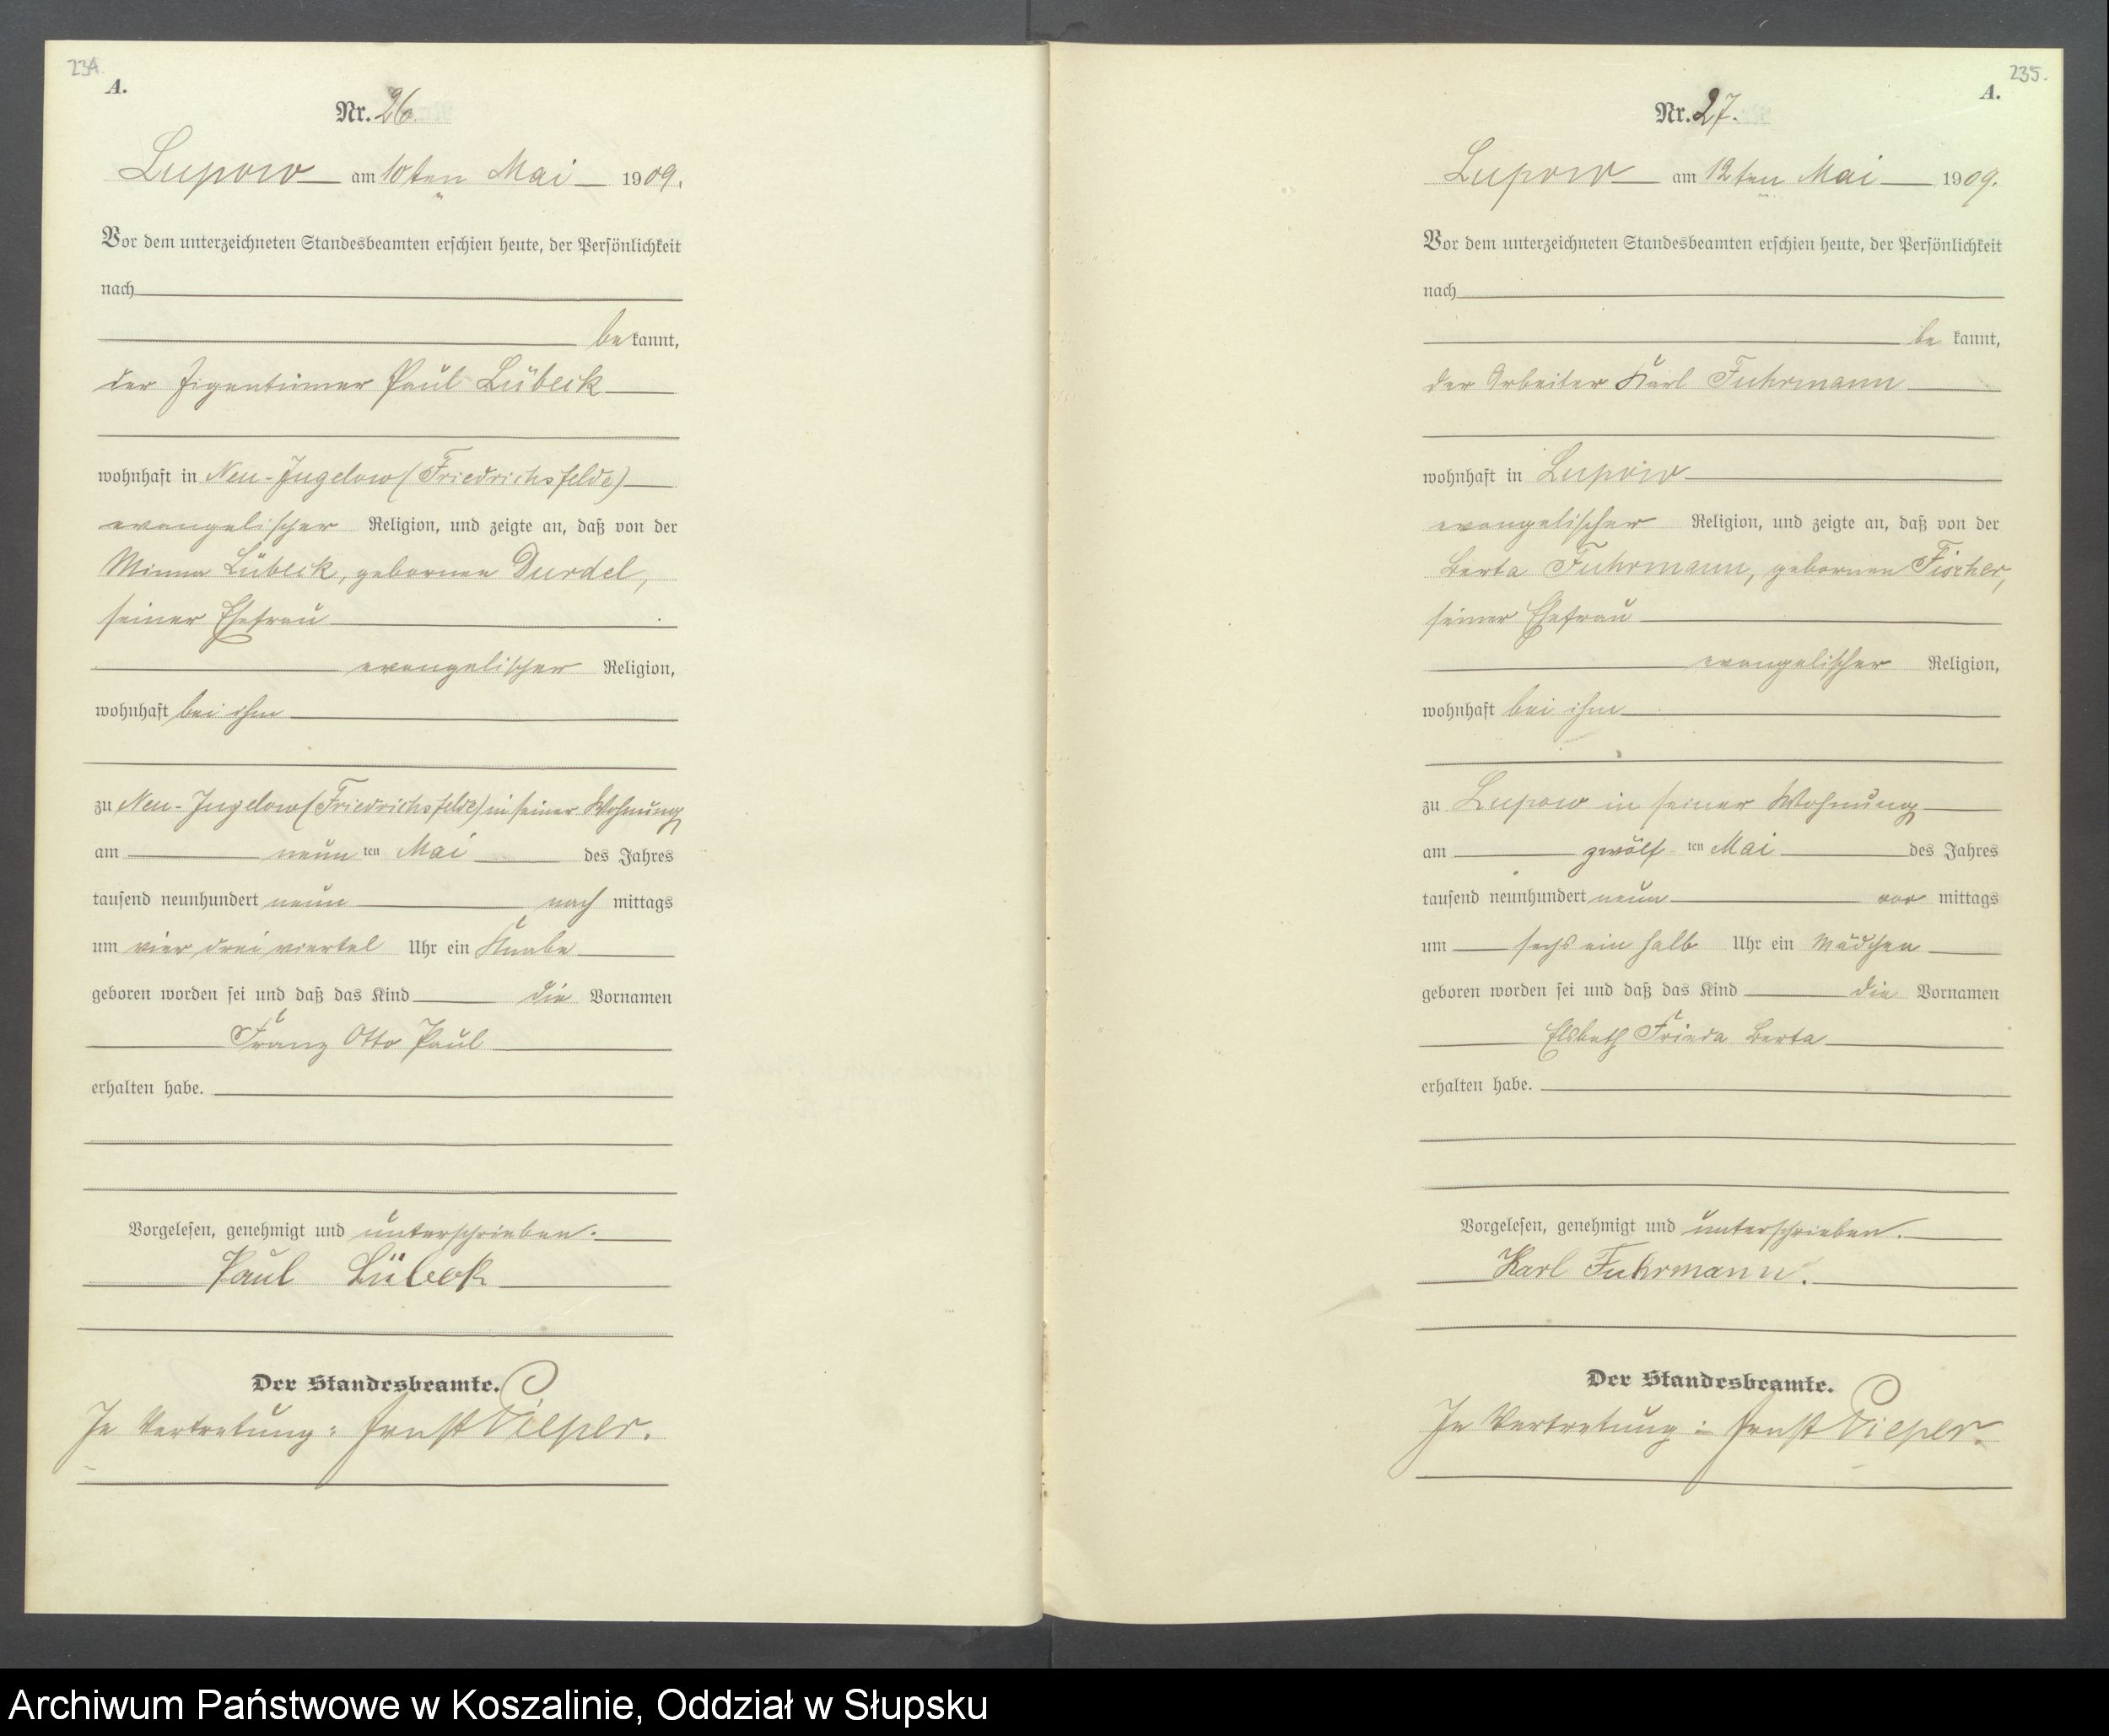 234.
A.
Nr. 26.
Lupow am 10ten Mai 1909.
Vor dem unterzeichneten Standesbeamten erschien heute, der Persönlichkeit
nach
be kannt,
der Eigentümer Paul Lübeck
wohnhaft in Neu-Jugelow (Friedrichsfelde)
evangelischer Religion, und zeigte an, daß von der
Minna Lübeck, geborenen Durdel,
seiner Ehefrau
evangelischer Religion,
wohnhaft bei ihm
zu Neu-Jugelow (Friedrichsfelde) in seiner Wohnung
am neun ten Mai des Jahres
tausend neunhundert neun nach mittags
um vier drei viertel Uhr ein Knabe
geboren worden sei und daß das Kind die Vornamen
Franz Otto Paul
erhalten habe.
Vorgelesen, genehmigt und unterschrieben.
Paul Lübeck
Der Standesbeamte.
In Vertretung: Ernst Pieper.
235.
A.
Nr. 27.
Lupow am 12ten Mai 1909.
Vor dem unterzeichneten Standesbeamten erschien heute, der Persönlichkeit
nach
be kannt,
der Arbeiter Karl Fuhrmann
wohnhaft in Lupow
evangelischer Religion, und zeigte an, daß von der
Berta Fuhrmann, geborenen Fischer,
seiner Ehefrau
evangelischer Religion,
wohnhaft bei ihm
zu Lupow in seiner Wohnung
am zwölf ten Mai des Jahres
tausend neunhundert neun vor mittags
um sechs ein halb Uhr ein Mädchen
geboren worden sei und daß das Kind die Vornamen
Elsbeth Frieda Berta
erhalten habe.
Vorgelesen, genehmigt und unterschrieben.
Karl Fuhrmann.
Der Standesbeamte.
In Vertretung: Ernst Pieper.
Archiwum Państwowe w Koszalinie, Oddział w Słupsku